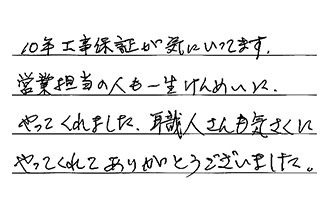 10年工事保証が気にいってます。
営業担当の人も一生けんめいに、
やってくれました、職人さんも気さくに
やってくれてありがとうございました。